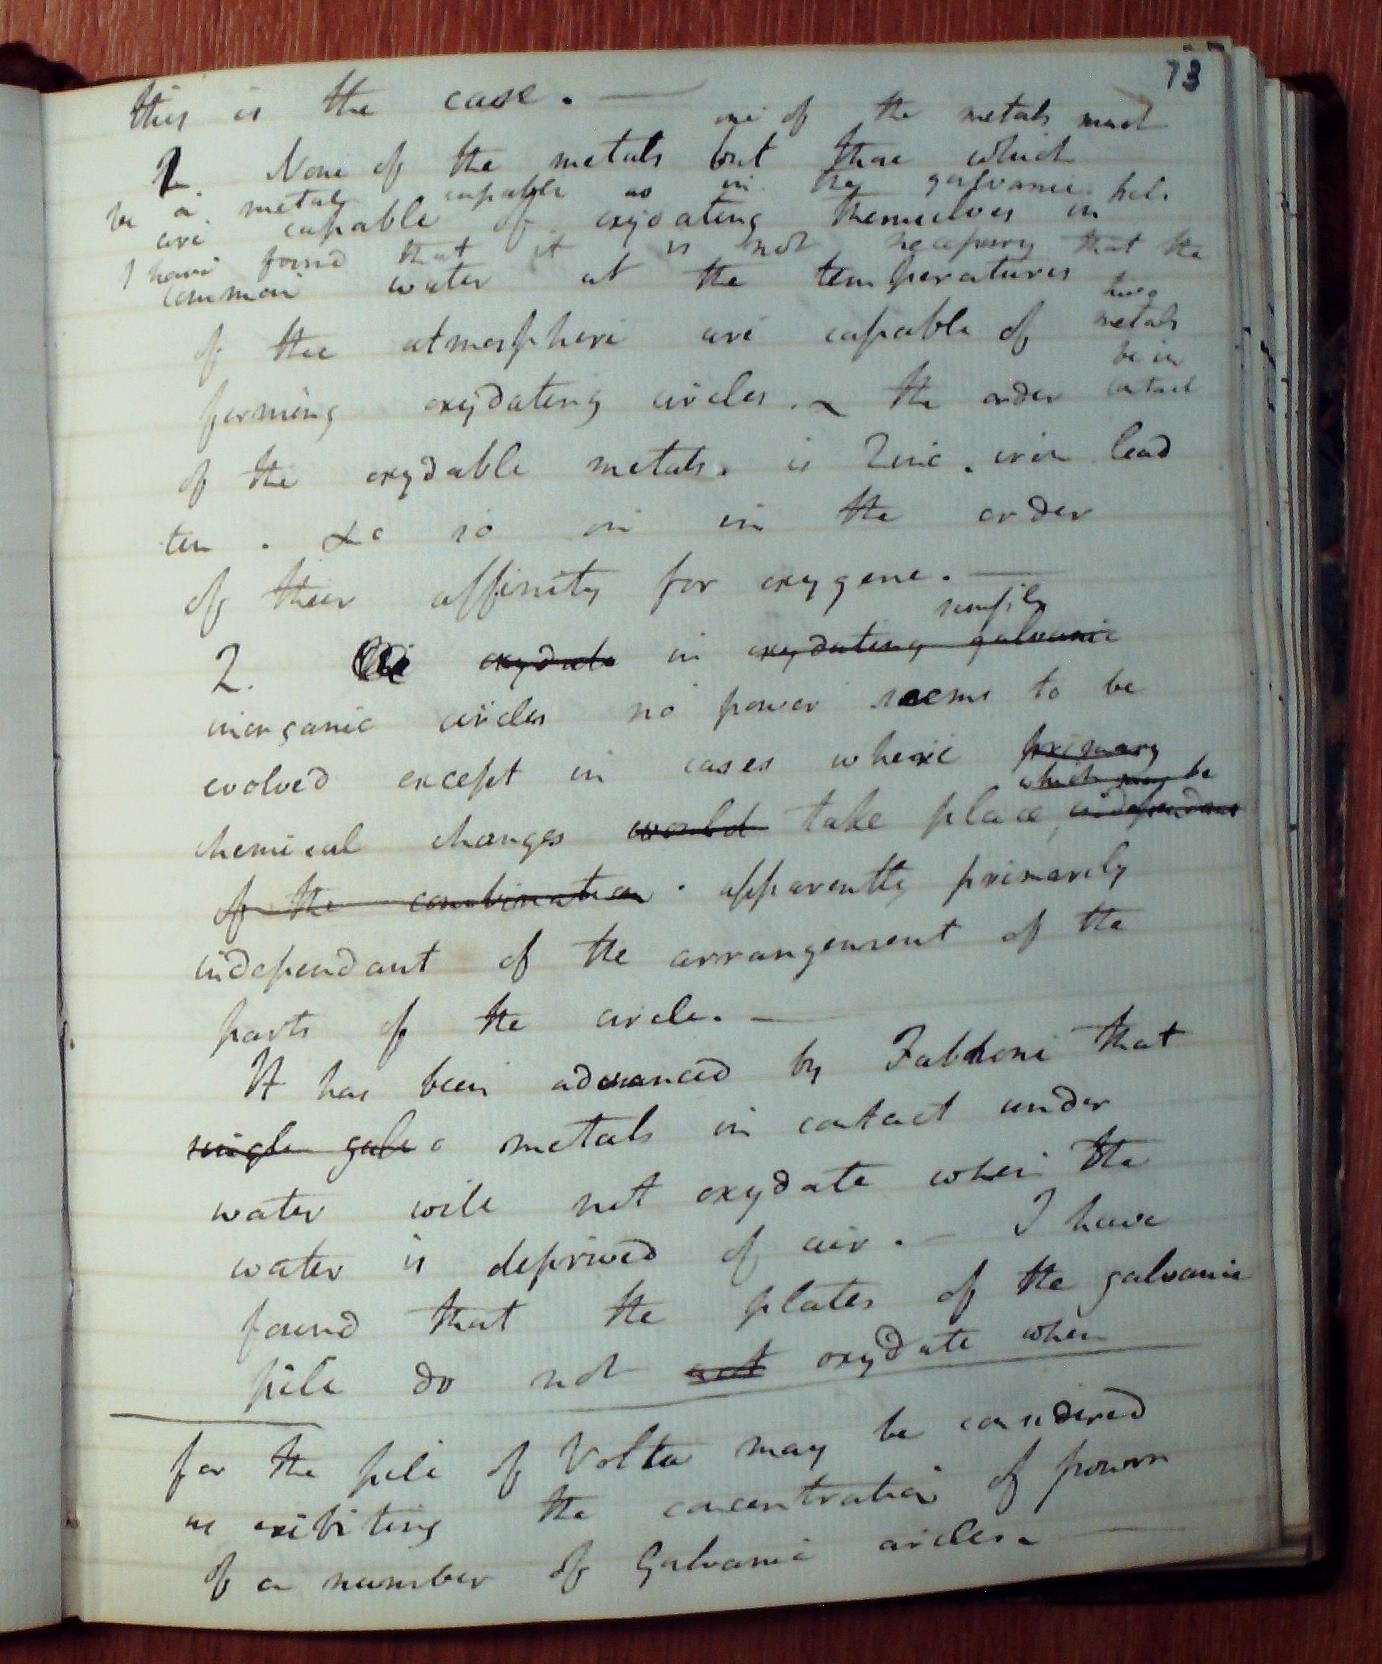 73
this is the case. —
one of the metals must
1. None of the metals but those which
be a metal capable as in the galvanic pile
are capable of oxydating themselves in
I have found that it is not necessary that the
common water at the temperatures
two
of the atmosphere are capable of metals
be in
forming oxydating circles. ~ the order contact
of the oxydable metals. is Zinc. iron lead
tin. &c so on in the order
of their affinity for oxygene. —
simply
2. oxydate in oxydating galvanic
inorganic circles no power seems to be
evolved except in cases where primary
which may be
chemical changes would take place, independant
of the combination. apparently primarily
independant of the arrangement of the
parts of the circle. —
It has been advanced by Fabbroni that
single galv metals in contact under
water will not oxydate when the
water is deprived of air. — I have
found that the plates of the galvanic
pile do not act oxydate when
for the pile of Volta may be considered
as exibiting the concentration of powers
of a number of Galvanic circles. —